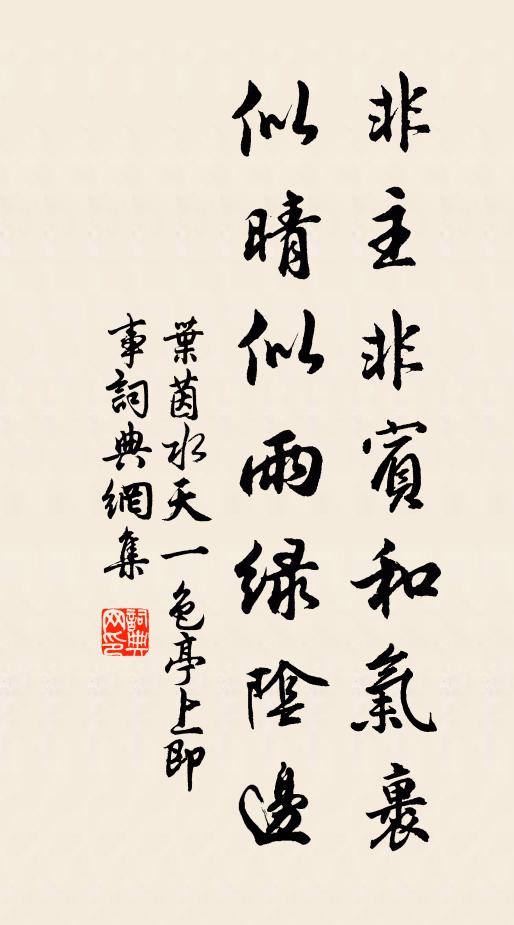 非主非賓和氣裹
似晴似雨緑陰邊
葉茵水天一色亭上即
事詞典網集
詞典
网印